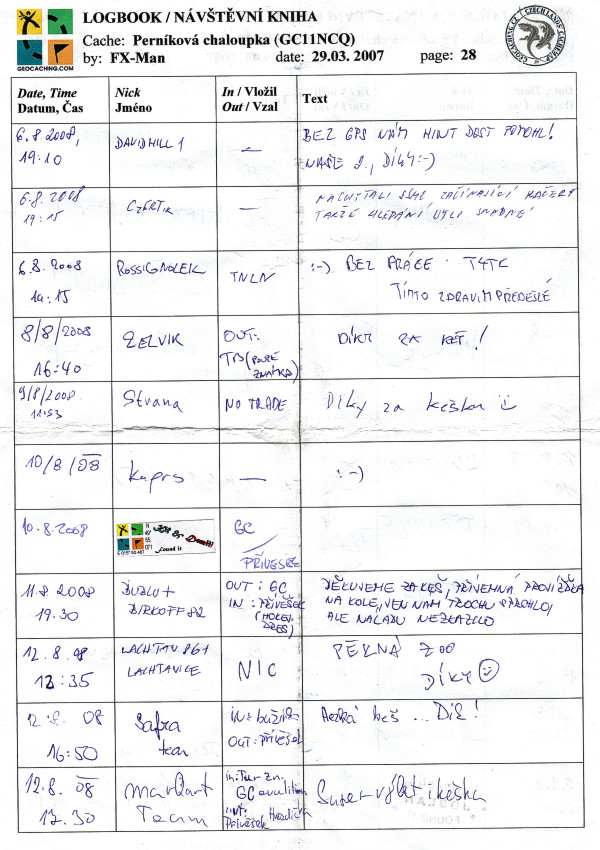 LOGBOOK / NÁVŠTĚVNÍ KNIHA
Cache: Perníková chaloupka (GC11NCQ)
by: FX-Man date: 29.03. 2007 page: 28
GEOCACHING.COM
Date, Time Nick In / Vložil Text
Datum, Čas Jméno Out / Vzal
6.8 2008, DAVIDHILL 1 — BEZ GPS NÁM HINT DOST POMOHL!
19:10 NAŠE 2., DÍKY:-)
6.8 2008 CZERTIK — NACHYTALI JSME ZAČÍNAJÍCÍ KAČERY
19:15 TAKŽE HLEDÁNÍ BYLO SNADNÉ
6.8.2008 ROSSIGNOLEK TNLN :-) BEZ PRÁCE TFTC
19:15 TÍMTO ZDRAVIM PŘEDEŠLÉ
8/8/2008 ZELVIK OUT: DÍKY ZA KEŠ!
16:40 TB
9/8/2008 Strana NO TRADE Díky za kešku
11:53
10/8/08 kuprs — :-)
10.8.2008 GC
N
49°
55.
071
Found it
PŘÍVESEK
11.8 2008 + OUT: GC DĚKUJEME ZA KEŠ, PŘÍJEMNÁ PROJÍŽĎKA
19.30 BIRKOFF82 IN: PŘÍVĚŠEK NA KOLE, JEN NÁM TROCHU SPRCHLO,
(HOKEJ. ALE NÁLADU NEZKAZILO
DRES)
12.8.08 LACHTAN861 NIC PĚKNÁ ZOO
13:35 LACHTANICE DÍKY
12.8.08 Safra IN: Hezká keš ... Dík!
16:50 team OUT: přívěšek
12.8.08 Markart in: Tur. zn. Super výlet i keška
17.30 Team GC
out:
Přívěsek